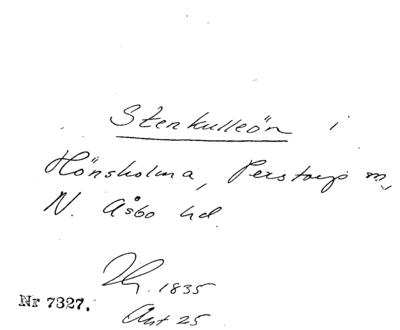 Stenkulleön i
Hönsholma, Perstorp
N. Åsbo hd.
1835
Akt 25
Nr 7327.